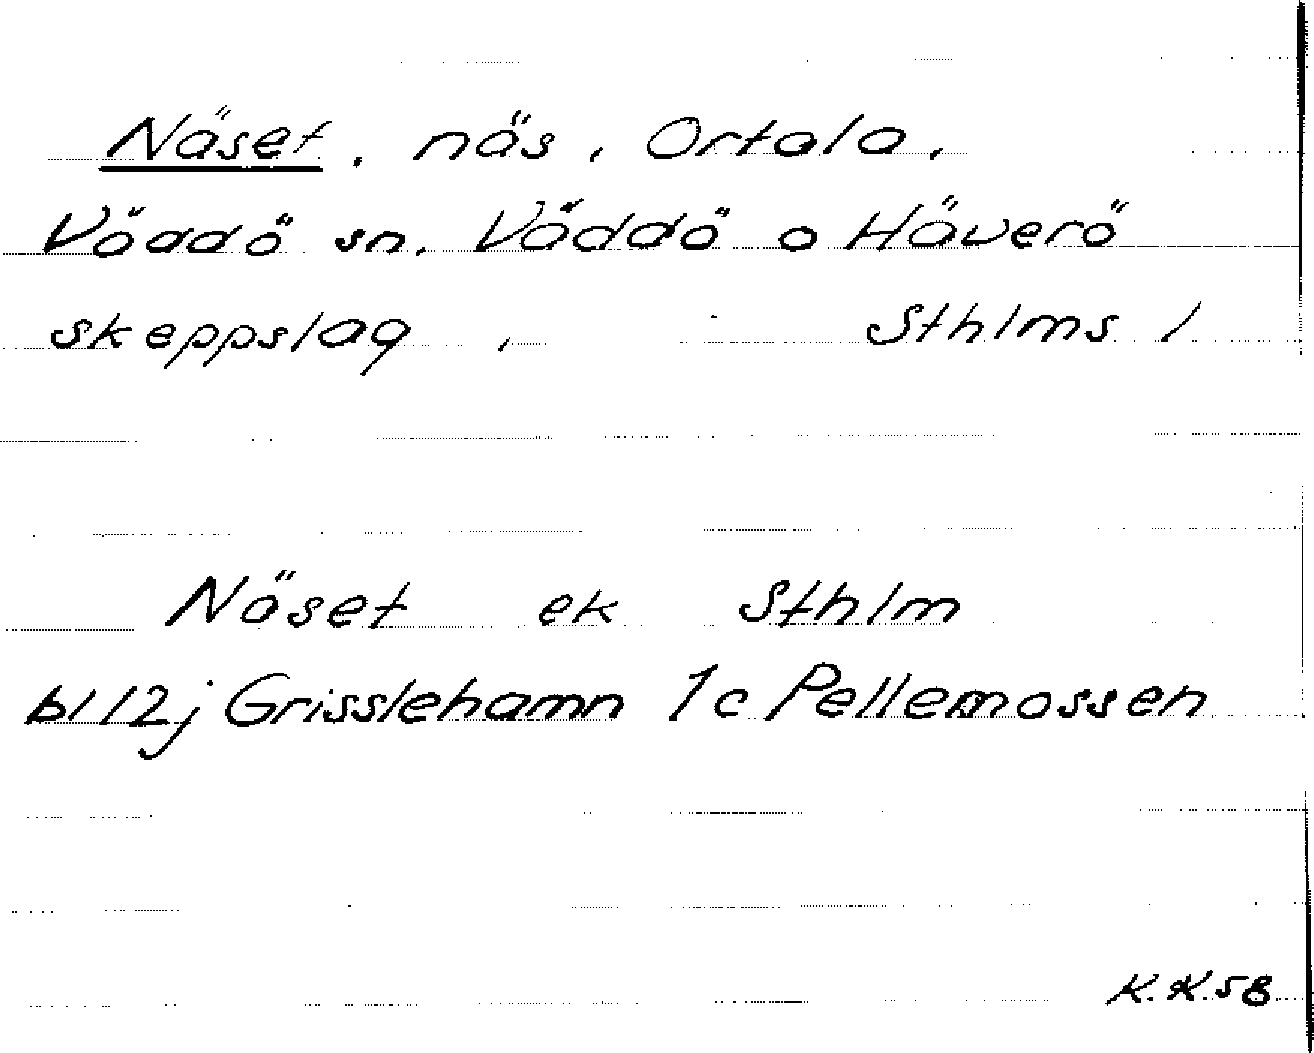 Näset, näs, Ortala,
Väddö sn. Väddö o Häverö
skeppslag, Sthlms l
Näset ek Sthlm
bl 12j Grisslehamn 1c Pellemossen
K.K.58